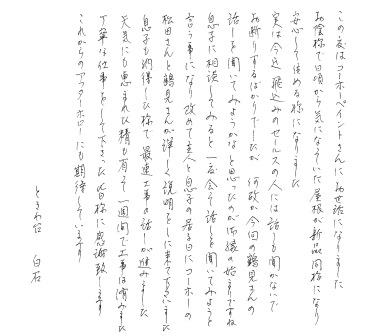 この度はコーホーペイントさんにお世話になりました
お陰様で日頃から気になっていた屋根が新品同様になり
安心して住める様になりました
実は今迄飛込みのセールスの人には話しも聞かないで
お断りするばかりでしたが 何故か今回の鶴見さんの
話しを聞いてみようかなと思ったのが御縁の始まりですね
息子に相談してみると一度会って話しを聞いてみようと
言う事になり改めて主人と息子の居る日にコーホーの
松田さんと鶴見さんが詳しく説明をしに来て下さいました
息子も納得した様で最速工事の話しが進みました
天気にも恵まれ 精も有って 一週間で工事は済みました
丁寧な仕事をして下さった皆様に感謝致します
これからのアフターホローにも期待しています
ときわ台 白石